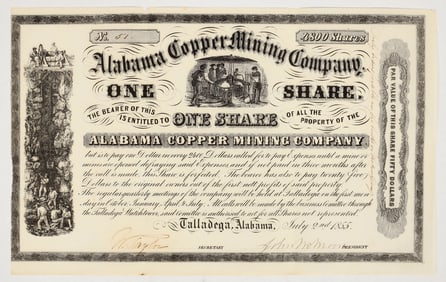 No. 51.
4800 Shares
Alabama Copper Mining Company,
ONE SHARE.
THE BEARER OF THIS IS ENTITLED TO ONE SHARE OF ALL THE PROPERTY OF THE
ALABAMA COPPER MINING COMPANY
but is to pay one Dollar in every 4800 Dollars called for to pay Expenses until a mine or
mines are opened defraying said Expenses, and if not paid in three months after
the call is made This Share is forfeited. The bearer has also to pay twenty five
Dollars to the original owners out of the first nett profits of said property.
The regular quarterly meetings of the company will be held in Talladega on the first mon-
day in October, January, April & July. All calls will be made by the business Committee through
the Talladega Watchtower, said Committee is authorised to act for all Shares not represented.
Talladega, Alabama, July 2nd 1855.
SECRETARY
PRESIDENT
PAR VALUE OF THIS SHARE FIFTY DOLLARS